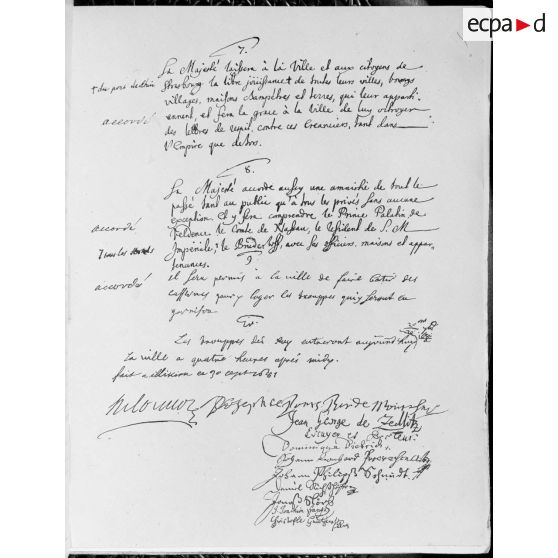 ecpa d
7.
Sa Majesté laissera à la Ville et aux citoyens de
Strasbourg la libre jouissance + de toutes leurs villes, bourgs
villages, maisons champêtres et terres, qui leur apparti
ennent, et fera la grace à la Ville de luy octroyer
accordé
des lettres de repit, contre ces Creanciers, tant dans
l'Empire que dehors.
8.
Sa Majesté accorde aussy une amnistie de tout le
passé tant au public qu'à tous les privés sans aucune
exception et y fera comprendre le Prince Palatin de
accordé
Veldence, le Comte de Nassau, le Resident de S. M
Imperiale, le Bruderhoff, avec ses officiers, maisons et appar
tenances.
9
accordé
et sera permis à la ville de faire batir des
casernes pour y loger les trouppes qui y seront en
garnison.
10.
Les trouppes du Roy entreront aujourd'huy
la ville à quatre heures après midy.
fait a Illkirch ce 30 sept 1681
Jean George de Zedlitz
Dominique Dietrich
Johann Philipp Schmidt
Jonas Störr
J. Joachim Frantz
Christofle Güntzer